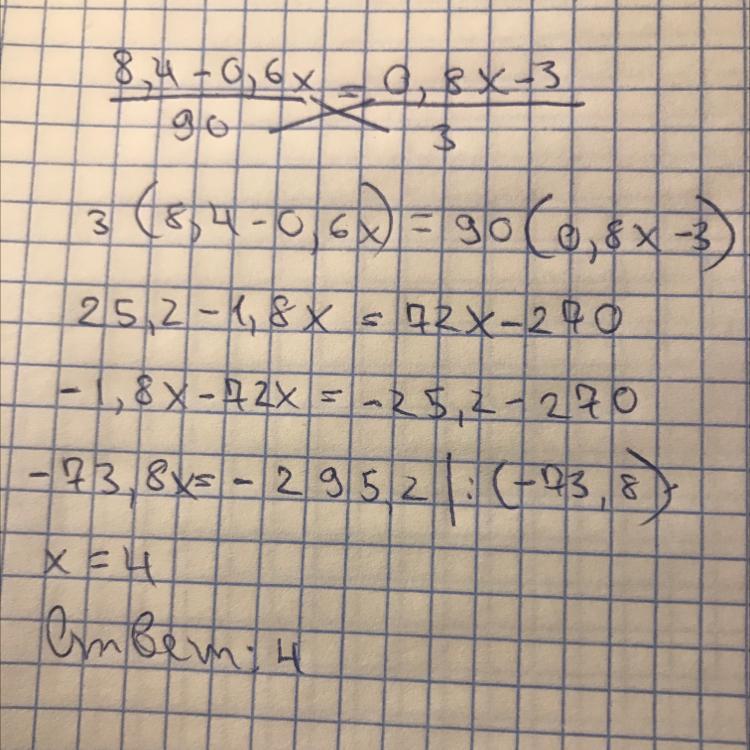 8,4-0,6x = 0,8x-3
90 3
3(8,4-0,6x)=90(0,8x-3)
25,2-1,8x=72x-270
-1,8x-72x=-25,2-270
-73,8x=-295,2|:(-73,8)
x=4
Ответ: 4